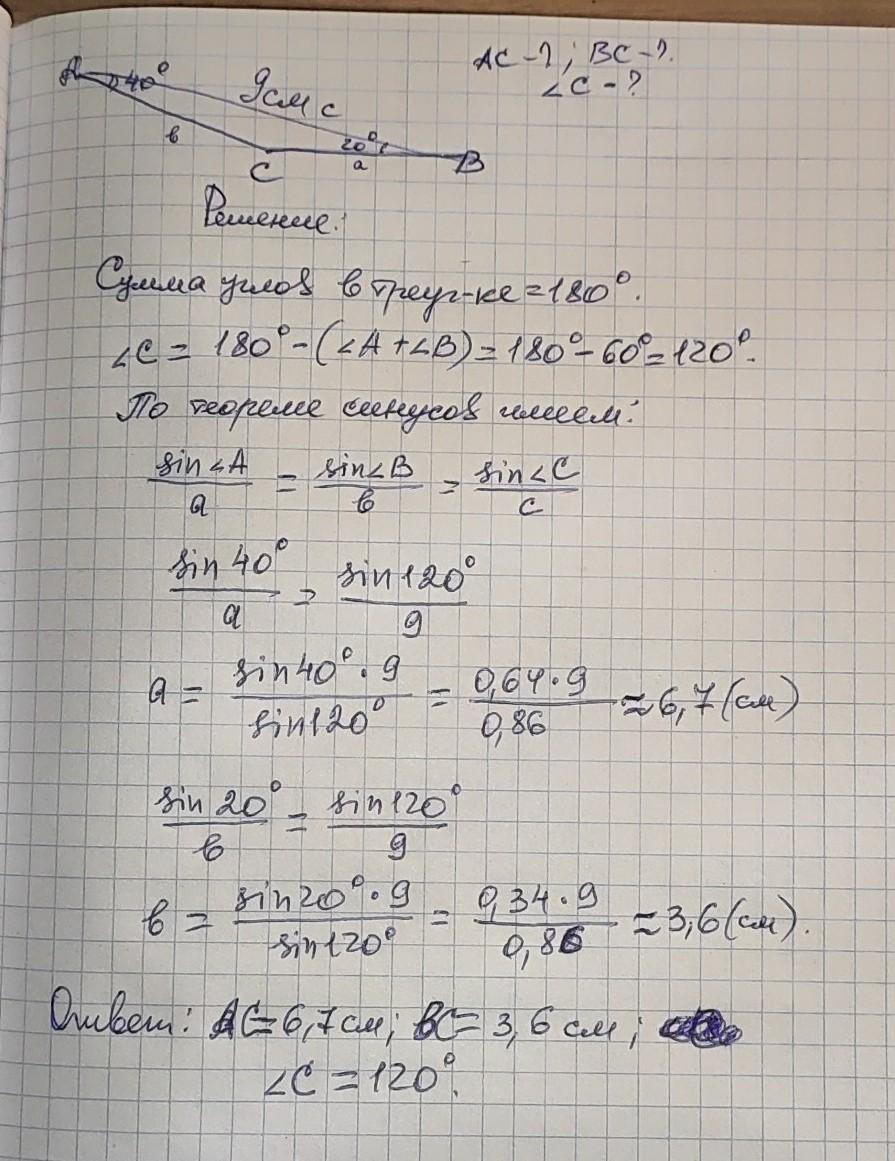 AC - ?; BC - ?.
∠C - ?
A 40° 9см c
в 20°
C a B
Решение:
Сумма углов в треуг-ке = 180°.
∠C = 180° - (∠A + ∠B) = 180° - 60° = 120°.
По теореме синусов имеем:
sin∠A/a = sin∠B/в = sin∠C/c
sin 40°/a = sin 120°/9
a = sin40° · 9/sin120° = 0,64 · 9/0,86 ≈ 6,7 (см)
sin 20°/в = sin 120°/9
в = sin20° · 9/sin120° = 0,34 · 9/0,86 ≈ 3,6 (см).
Ответ: AC = 6,7 см; BC = 3,6 см;
∠C = 120°.